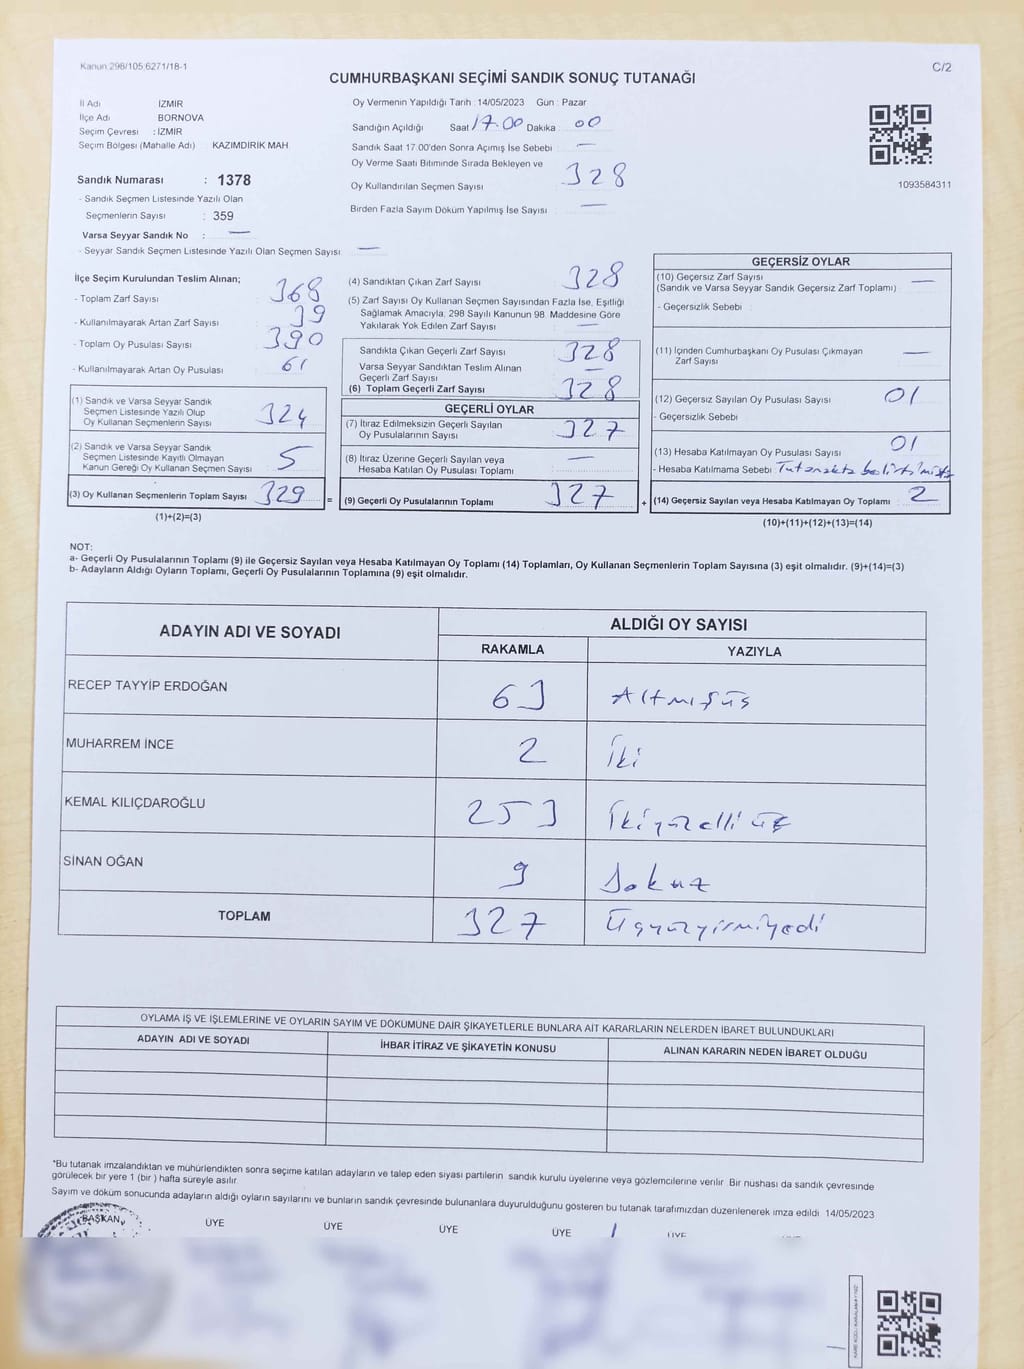 Kanun:298/105;6271/18-1
C/2
CUMHURBAŞKANI SEÇİMİ SANDIK SONUÇ TUTANAĞI
İl Adı İZMİR
İlçe Adı BORNOVA
Seçim Çevresi : İZMİR
Seçim Bölgesi (Mahalle Adı) : KAZIMDİRİK MAH.
Sandık Numarası : 1378
- Sandık Seçmen Listesinde Yazılı Olan
Seçmenlerin Sayısı : 359
Varsa Seyyar Sandık No : —
- Seyyar Sandık Seçmen Listesinde Yazılı Olan Seçmen Sayısı —
Oy Vermenin Yapıldığı Tarih : 14/05/2023 Gün : Pazar
Sandığın Açıldığı Saat 17.00 Dakika 00
Sandık Saat 17.00'den Sonra Açımış İse Sebebi : —
Oy Verme Saati Bitiminde Sırada Bekleyen ve
Oy Kullandırılan Seçmen Sayısı 328
Birden Fazla Sayım Döküm Yapılmış İse Sayısı —
1093584311
İlçe Seçim Kurulundan Teslim Alınan;
- Toplam Zarf Sayısı 368
- Kullanılmayarak Artan Zarf Sayısı 39
- Toplam Oy Pusulası Sayısı 390
- Kullanılmayarak Artan Oy Pusulası 61
(1) Sandık ve Varsa Seyyar Sandık
Seçmen Listesinde Yazılı Olup
Oy Kullanan Seçmenlerin Sayısı 324
(2) Sandık ve Varsa Seyyar Sandık
Seçmen Listesinde Kayıtlı Olmayan
Kanun Gereği Oy Kullanan Seçmen Sayısı 5
(3) Oy Kullanan Seçmenlerin Toplam Sayısı 329 =
(1)+(2)=(3)
(4) Sandıktan Çıkan Zarf Sayısı 328
(5) Zarf Sayısı Oy Kullanan Seçmen Sayısından Fazla İse, Eşitliği
Sağlamak Amacıyla; 298 Sayılı Kanunun 98. Maddesine Göre
Yakılarak Yok Edilen Zarf Sayısı —
Sandıkta Çıkan Geçerli Zarf Sayısı 328
Varsa Seyyar Sandıktan Teslim Alınan
Geçerli Zarf Sayısı —
(6) Toplam Geçerli Zarf Sayısı 328
GEÇERLİ OYLAR
(7) İtiraz Edilmeksizin Geçerli Sayılan
Oy Pusulalarının Sayısı 327
(8) İtiraz Üzerine Geçerli Sayılan veya
Hesaba Katılan Oy Pusulası Toplamı —
(9) Geçerli Oy Pusulalarının Toplamı 327 +
GEÇERSİZ OYLAR
(10) Geçersiz Zarf Sayısı
(Sandık ve Varsa Seyyar Sandık Geçersiz Zarf Toplamı) —
- Geçersizlik Sebebi :
(11) İçinden Cumhurbaşkanı Oy Pusulası Çıkmayan
Zarf Sayısı —
(12) Geçersiz Sayılan Oy Pusulası Sayısı 01
- Geçersizlik Sebebi
(13) Hesaba Katılmayan Oy Pusulası Sayısı 01
- Hesaba Katılmama Sebebi Tutanakta belirtilmiştir
(14) Geçersiz Sayılan veya Hesaba Katılmayan Oy Toplamı 2
(10)+(11)+(12)+(13)=(14)
NOT:
a- Geçerli Oy Pusulalarının Toplamı (9) ile Geçersiz Sayılan veya Hesaba Katılmayan Oy Toplamı (14) Toplamları, Oy Kullanan Seçmenlerin Toplam Sayısına (3) eşit olmalıdır. (9)+(14)=(3)
b- Adayların Aldığı Oyların Toplamı, Geçerli Oy Pusulalarının Toplamına (9) eşit olmalıdır.
ADAYIN ADI VE SOYADI ALDIĞI OY SAYISI
RAKAMLA YAZIYLA
RECEP TAYYİP ERDOĞAN 63 Altmışüş
MUHARREM İNCE 2 İki
KEMAL KILIÇDAROĞLU 253 İkiyüzelli üç
SİNAN OĞAN 9 Dokuz
TOPLAM 327 Üçyüzyirmiyedi
OYLAMA İŞ VE İŞLEMLERİNE VE OYLARIN SAYIM VE DÖKÜMÜNE DAİR ŞİKAYETLERLE BUNLARA AİT KARARLARIN NELERDEN İBARET BULUNDUKLARI
ADAYIN ADI VE SOYADI İHBAR İTİRAZ VE ŞİKAYETİN KONUSU ALINAN KARARIN NEDEN İBARET OLDUĞU
*Bu tutanak imzalandıktan ve mühürlendikten sonra seçime katılan adayların ve talep eden siyasi partilerin sandık kurulu üyelerine veya gözlemcilerine verilir. Bir nüshası da sandık çevresinde
görülecek bir yere 1 (bir ) hafta süreyle asılır.
Sayım ve döküm sonucunda adayların aldığı oyların sayılarını ve bunların sandık çevresinde bulunanlara duyurulduğunu gösteren bu tutanak tarafımızdan düzenlenerek imza edildi. 14/05/2023
BAŞKAN ÜYE ÜYE ÜYE ÜYE ÜYE